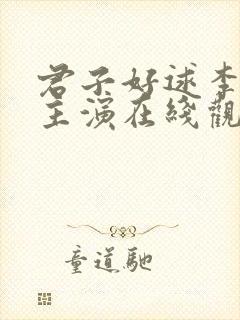 君子好逑李
主演在綫觀
童道馳